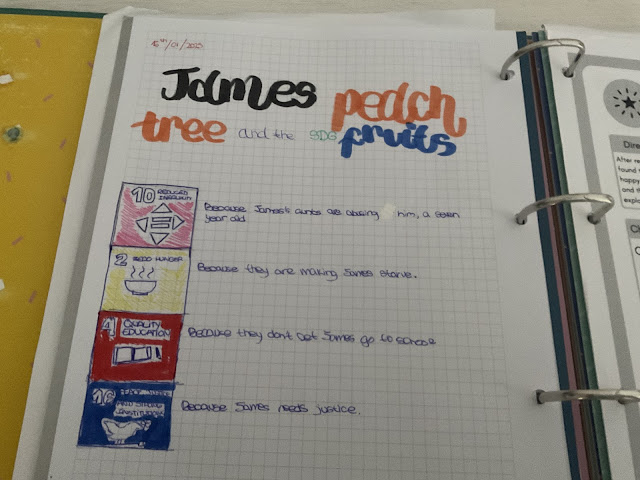 16th/01/2023
James peach
tree and the SDG fruits
10 REDUCED
INEQUALITY
Because James's aunts are abusing him, a seven
year old
2 ZERO HUNGER
Because they are making James starve.
4 QUALITY
EDUCATION
Because they don't let James go to school
16 PEACE, JUSTICE
AND STRONG
INSTITUTIONS
Because James needs justice.
Dire
After re
found t
happy
and th
explo